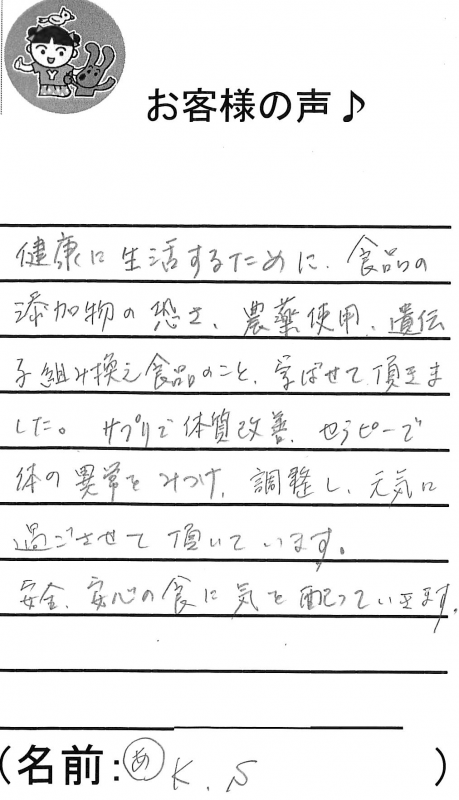 お客様の声♪
健康に生活するために、食品の
添加物の恐さ、農薬使用、遺伝
子組み換え食品のこと、学ばせて頂きま
した。サプリで体質改善、セラピーで
体の異常をみつけ、調整し、元気に
過ごさせて頂いています。
安全、安心の食に気を配っています。
(名前:あ K.S )